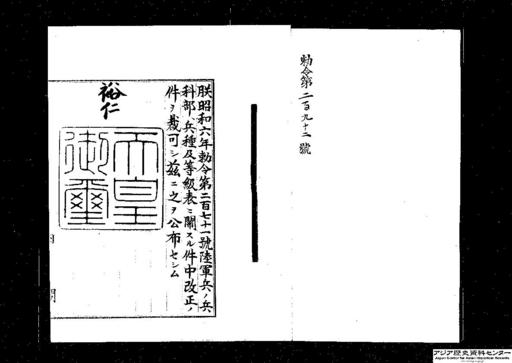 勅令第二百九十二號
朕昭和六年勅令第二百七十一號陸軍兵ノ兵
科部、兵種及等級表ニ關スル件中改正ノ
件ヲ裁可シ茲ニ之ヲ公布セシム
裕仁
天皇
御璽
アジア歴史資料センター
Japan Center for Asian Historical Records